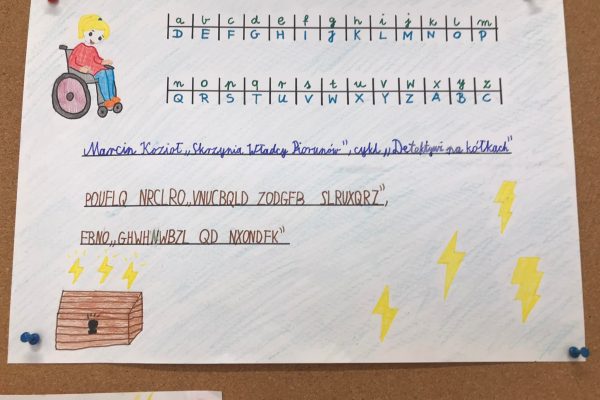 a b c d e f g h i j k l m
D E F G H I J K L M N O P
n o p q r s t u v w x y z
Q R S T U V W X Y Z A B C
Marcin Kozioł „Skrzynia Władcy Piorunów", cykl „Detektywi na kółkach"
PDUFLQ NRCLRO „VNUCBQLD ZODGFB SLRUXQRZ",
FBNO „GHWHNWBZL QD NXONDFK"